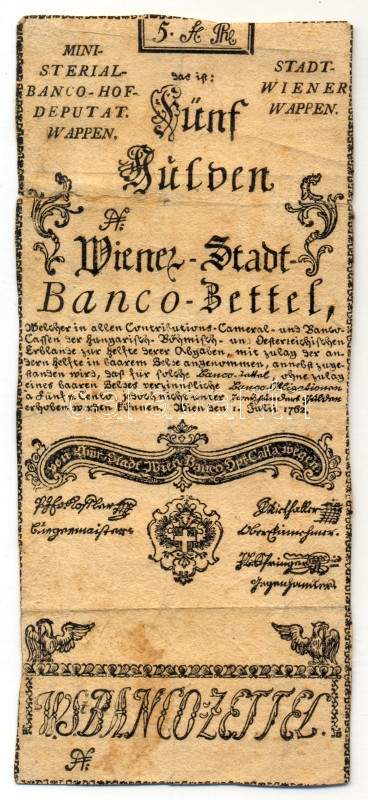 5.
MINI-
STERIAL-
BANCO-HOF-
DEPUTAT.
WAPPEN.
STADT-
WIENER
WAPPEN.
das ist:
Fünf
Gulden
Wiener-Stadt-
Banco-Zettel,
Welcher in allen Contributions-Cameral- und Banco-
Cassen der Hungarisch-Böhmisch- und Oesterreichischen
Erblande zur helfte derer Abgaben, mit zulag der an-
dern helfte in baarem Gelde angenommen, annebst zuge-
standen wird, daß für solche Banco-Zettel, ohne zulag
eines baaren Geldes verzinnsliche Banco-Obligationen
a Fünf p Cento, jedoch nicht unter Gulden
erhoben werden können. Wien den 1. Julii 1762.
Von Stadt Wien Banco Cassa wegen
Burgermaister
Obereinnehmer.
Gegenhandler
WS BANCO-ZETTEL.